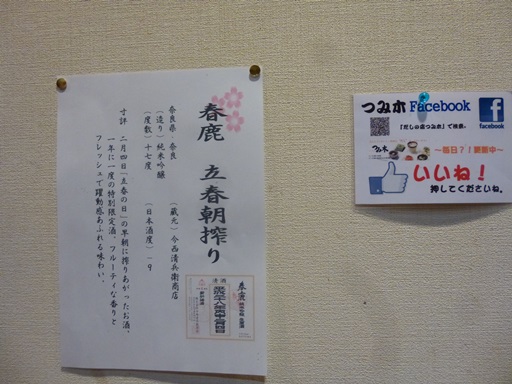 春鹿 立春朝搾り
奈良県・奈良 （蔵元）今西清兵衛商店
（造り）純米吟醸
（度数）十七度 （日本酒度）－９
寸評 二月四日「立春の日」の早朝に搾りあがったお酒。
一年に一度の特別限定酒。フルーティな香りと
フレッシュで躍動感あふれる味わい。
清酒
春鹿
つみホFacebook
facebook
「だしの店つみホ」で検索。
～毎日？！更新中～
いいね！
押してくださいね。